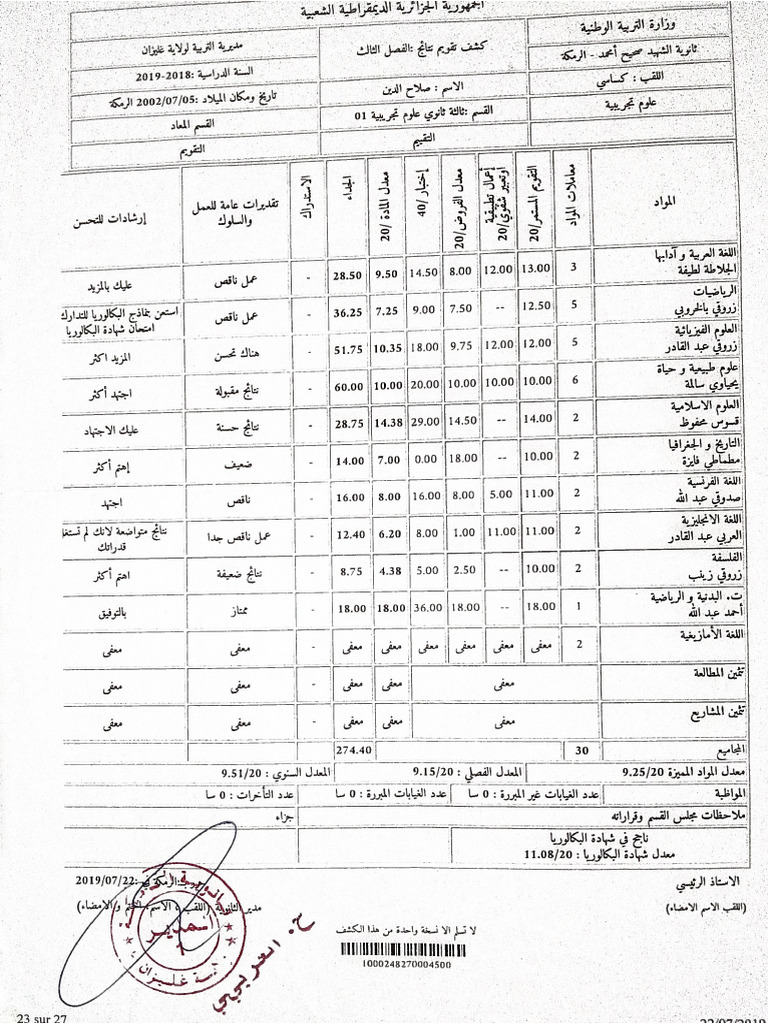 الجمهورية الجزائرية الديمقراطية الشعبية
وزارة التربية الوطنية
كشف تقويم نتائج :الفصل الثالث
مديرية التربية لولاية غليزان
ثانوية الشهيد صحيح أحمد - الرمكة
السنة الدراسية :2018-2019
اللقب : كساسي
الاسم : صلاح الدين
تاريخ ومكان الميلاد :2002/07/05 الرمكة
علوم تجريبية
القسم :ثالثة ثانوي علوم تجريبية 01
القسم المعاد
التقييم
التقويم
المواد معاملات المواد التقويم المستمر/20 أعمال تطبيقية أوتعبير شفوي/20 معدل الفروض/20 إختبار /40 معدل المادة /20 الجداء الاستدراك تقديرات عامة للعمل والسلوك إرشادات للتحسن
اللغة العربية و آدابها
الجلاطة لطيفة 3 13.00 12.00 8.00 14.50 9.50 28.50 - عمل ناقص عليك بالمزيد
الرياضيات
زروقي بالخروبي 5 12.50 -- 7.50 9.00 7.25 36.25 - عمل ناقص استعن بنماذج البكالوريا للتدارك امتحان شهادة البكالوريا
العلوم الفيزيائية
زروقي عبد القادر 5 12.00 12.00 9.75 18.00 10.35 51.75 - هناك تحسن المزيد اكثر
علوم طبيعية و حياة
يحياوي سالمة 6 10.00 10.00 10.00 20.00 10.00 60.00 - نتائج مقبولة اجتهد أكثر
العلوم الاسلامية
قسوس محفوظ 2 14.00 -- 14.50 29.00 14.38 28.75 - نتائج حسنة عليك الاجتهاد
التاريخ و الجغرافيا
مطماطي فايزة 2 10.00 -- 18.00 0.00 7.00 14.00 - ضعيف إهتم أكثر
اللغة الفرنسية
صدوقي عبد الله 2 11.00 5.00 8.00 16.00 8.00 16.00 - ناقص اجتهد
اللغة الانجليزية
العربي عبد القادر 2 11.00 11.00 1.00 8.00 6.20 12.40 - عمل ناقص جدا نتائج متواضعة لانك لم تستغل قدراتك
الفلسفة
زروقي زينب 2 10.00 -- 2.50 5.00 4.38 8.75 - نتائج ضعيفة اهتم أكثر
ت. البدنية و الرياضية
أحمد عبد الله 1 18.00 -- 18.00 36.00 18.00 18.00 - ممتاز بالتوفيق
اللغة الأمازيغية 2 معفى معفى معفى معفى معفى معفى - معفى معفى
تثمين المطالعة معفى معفى معفى - معفى معفى
تثمين المشاريع معفى معفى معفى - معفى معفى
المجاميع 30 274.40
معدل المواد المميزة 9.25/20 المعدل الفصلي : 9.15/20 المعدل السنوي : 9.51/20
المواظبة عدد الغيابات غير المبررة : 0 سا عدد الغيابات المبررة : 0 سا عدد التأخرات : 0 سا
ملاحظات مجلس القسم وقراراته جزاء
ناجح في شهادة البكالوريا
معدل شهادة البكالوريا : 11.08/20
الاستاذ الرئيسي
الرمكة في:2019/07/22
(اللقب الاسم الامضاء)
مدير الثانوية (اللقب ، الاسم الختم و الامضاء)
المدير
غليزان
لا تسلم الا نسخة واحدة من هذا الكشف
1000248270004500
23 sur 27
22/07/2019